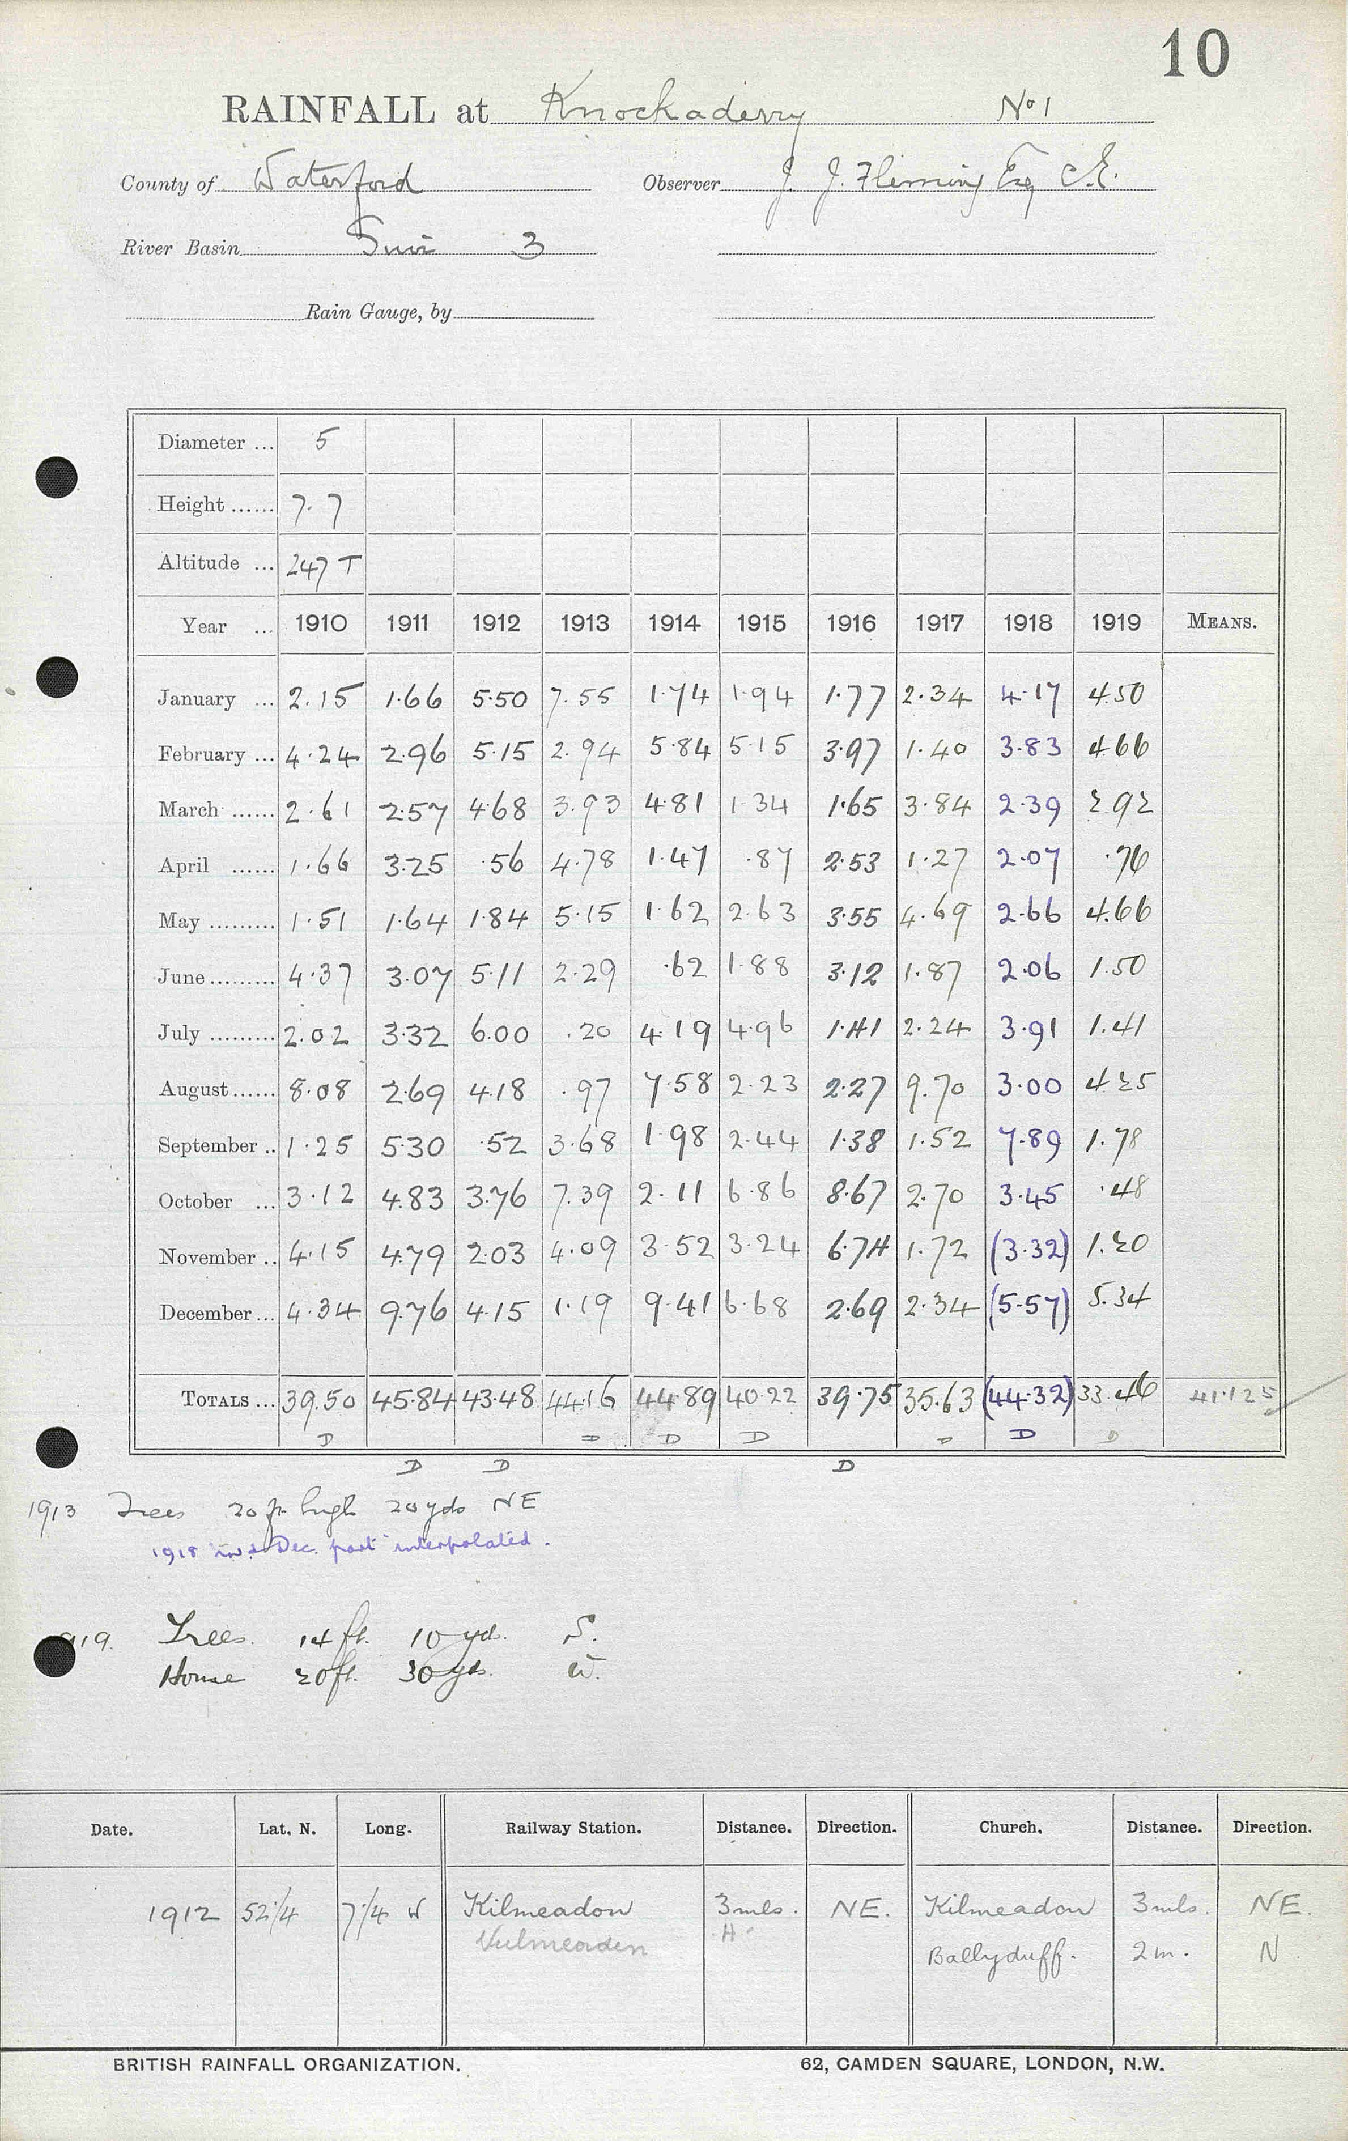 10
RAINFALL at Knockaderry No 1
County of Waterford Observer J. J. Fleming Esq C.E.
River Basin Suir 3
Rain Gauge, by
Diameter ... 5
Height ...... 7.7
Altitude ... 247 T
Year ... 1910 1911 1912 1913 1914 1915 1916 1917 1918 1919 MEANS.
January ... 2.15 1.66 5.50 7.55 1.74 1.94 1.77 2.34 4.17 4.50
February ... 4.24 2.96 5.15 2.94 5.84 5.15 3.97 1.40 3.83 4.66
March ...... 2.61 2.57 4.68 3.93 4.81 1.34 1.65 3.84 2.39 2.92
April ...... 1.66 3.25 .56 4.78 1.47 .87 2.53 1.27 2.07 .76
May ......... 1.51 1.64 1.84 5.15 1.62 2.63 3.55 4.69 2.66 4.66
June ......... 4.37 3.07 5.11 2.29 .62 1.88 3.12 1.87 2.06 1.50
July ......... 2.02 3.32 6.00 .20 4.19 4.96 1.41 2.24 3.91 1.41
August ...... 8.08 2.69 4.18 .97 7.58 2.23 2.27 9.70 3.00 4.25
September .. 1.25 5.30 .52 3.68 1.98 2.44 1.38 1.52 7.89 1.78
October ... 3.12 4.83 3.76 7.39 2.11 6.86 8.67 2.70 3.45 .48
November .. 4.15 4.79 2.03 4.09 3.52 3.24 6.74 1.72 (3.32) 1.20
December ... 4.34 9.76 4.15 1.19 9.41 6.68 2.69 2.34 (5.57) 5.34
TOTALS ... 39.50 45.84 43.48 44.16 44.89 40.22 39.75 35.63 (44.32) 33.46 41.125
D D D D D D D
D D D
1913 Trees 20 ft high 20 yds NE
1918 Nov & Dec. part interpolated.
1919. Trees 14 ft. 10 yd. S.
House 20 ft. 30 yds. W.
Date. Lat. N. Long. Railway Station. Distance. Direction. Church. Distance. Direction.
1912 52 1/4 7 1/4 W Kilmeadon 3 mls. NE. Kilmeadon 3 mls. NE.
Ballyduff. 2 m. N
BRITISH RAINFALL ORGANIZATION. 62, CAMDEN SQUARE, LONDON, N.W.